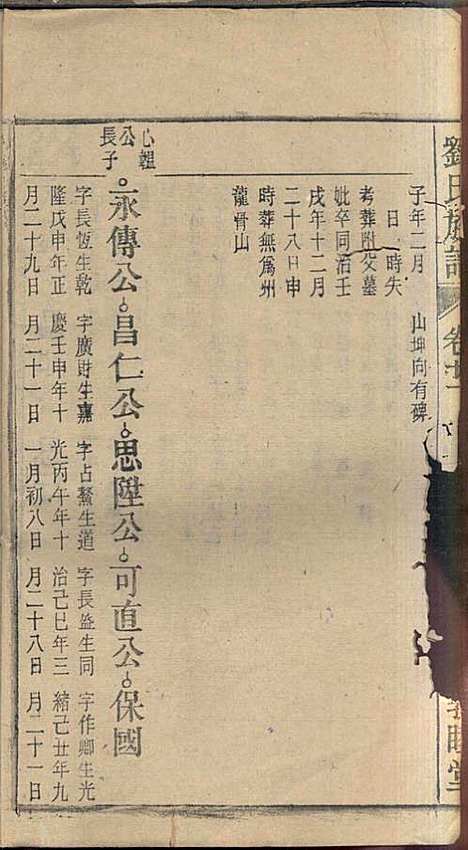 劉氏族譜
卷廿一
敦睦堂
子年二月　山坤向有碑
日　時失
考葬附父墓
妣卒同治壬
戌年十二月
二十八日申
時葬無爲州
龍骨山
心
祖
公
長子
永傳公
昌仁公
思陞公
可直公
保國
字長恆生乾
隆戊申年正
月二十九日
字廣財生嘉
慶壬申年十
月二十一日
字占鰲生道
光丙午年十
一月初八日
字長益生同
治己巳年三
月二十八日
字作卿生光
緒己丑年九
月二十一日